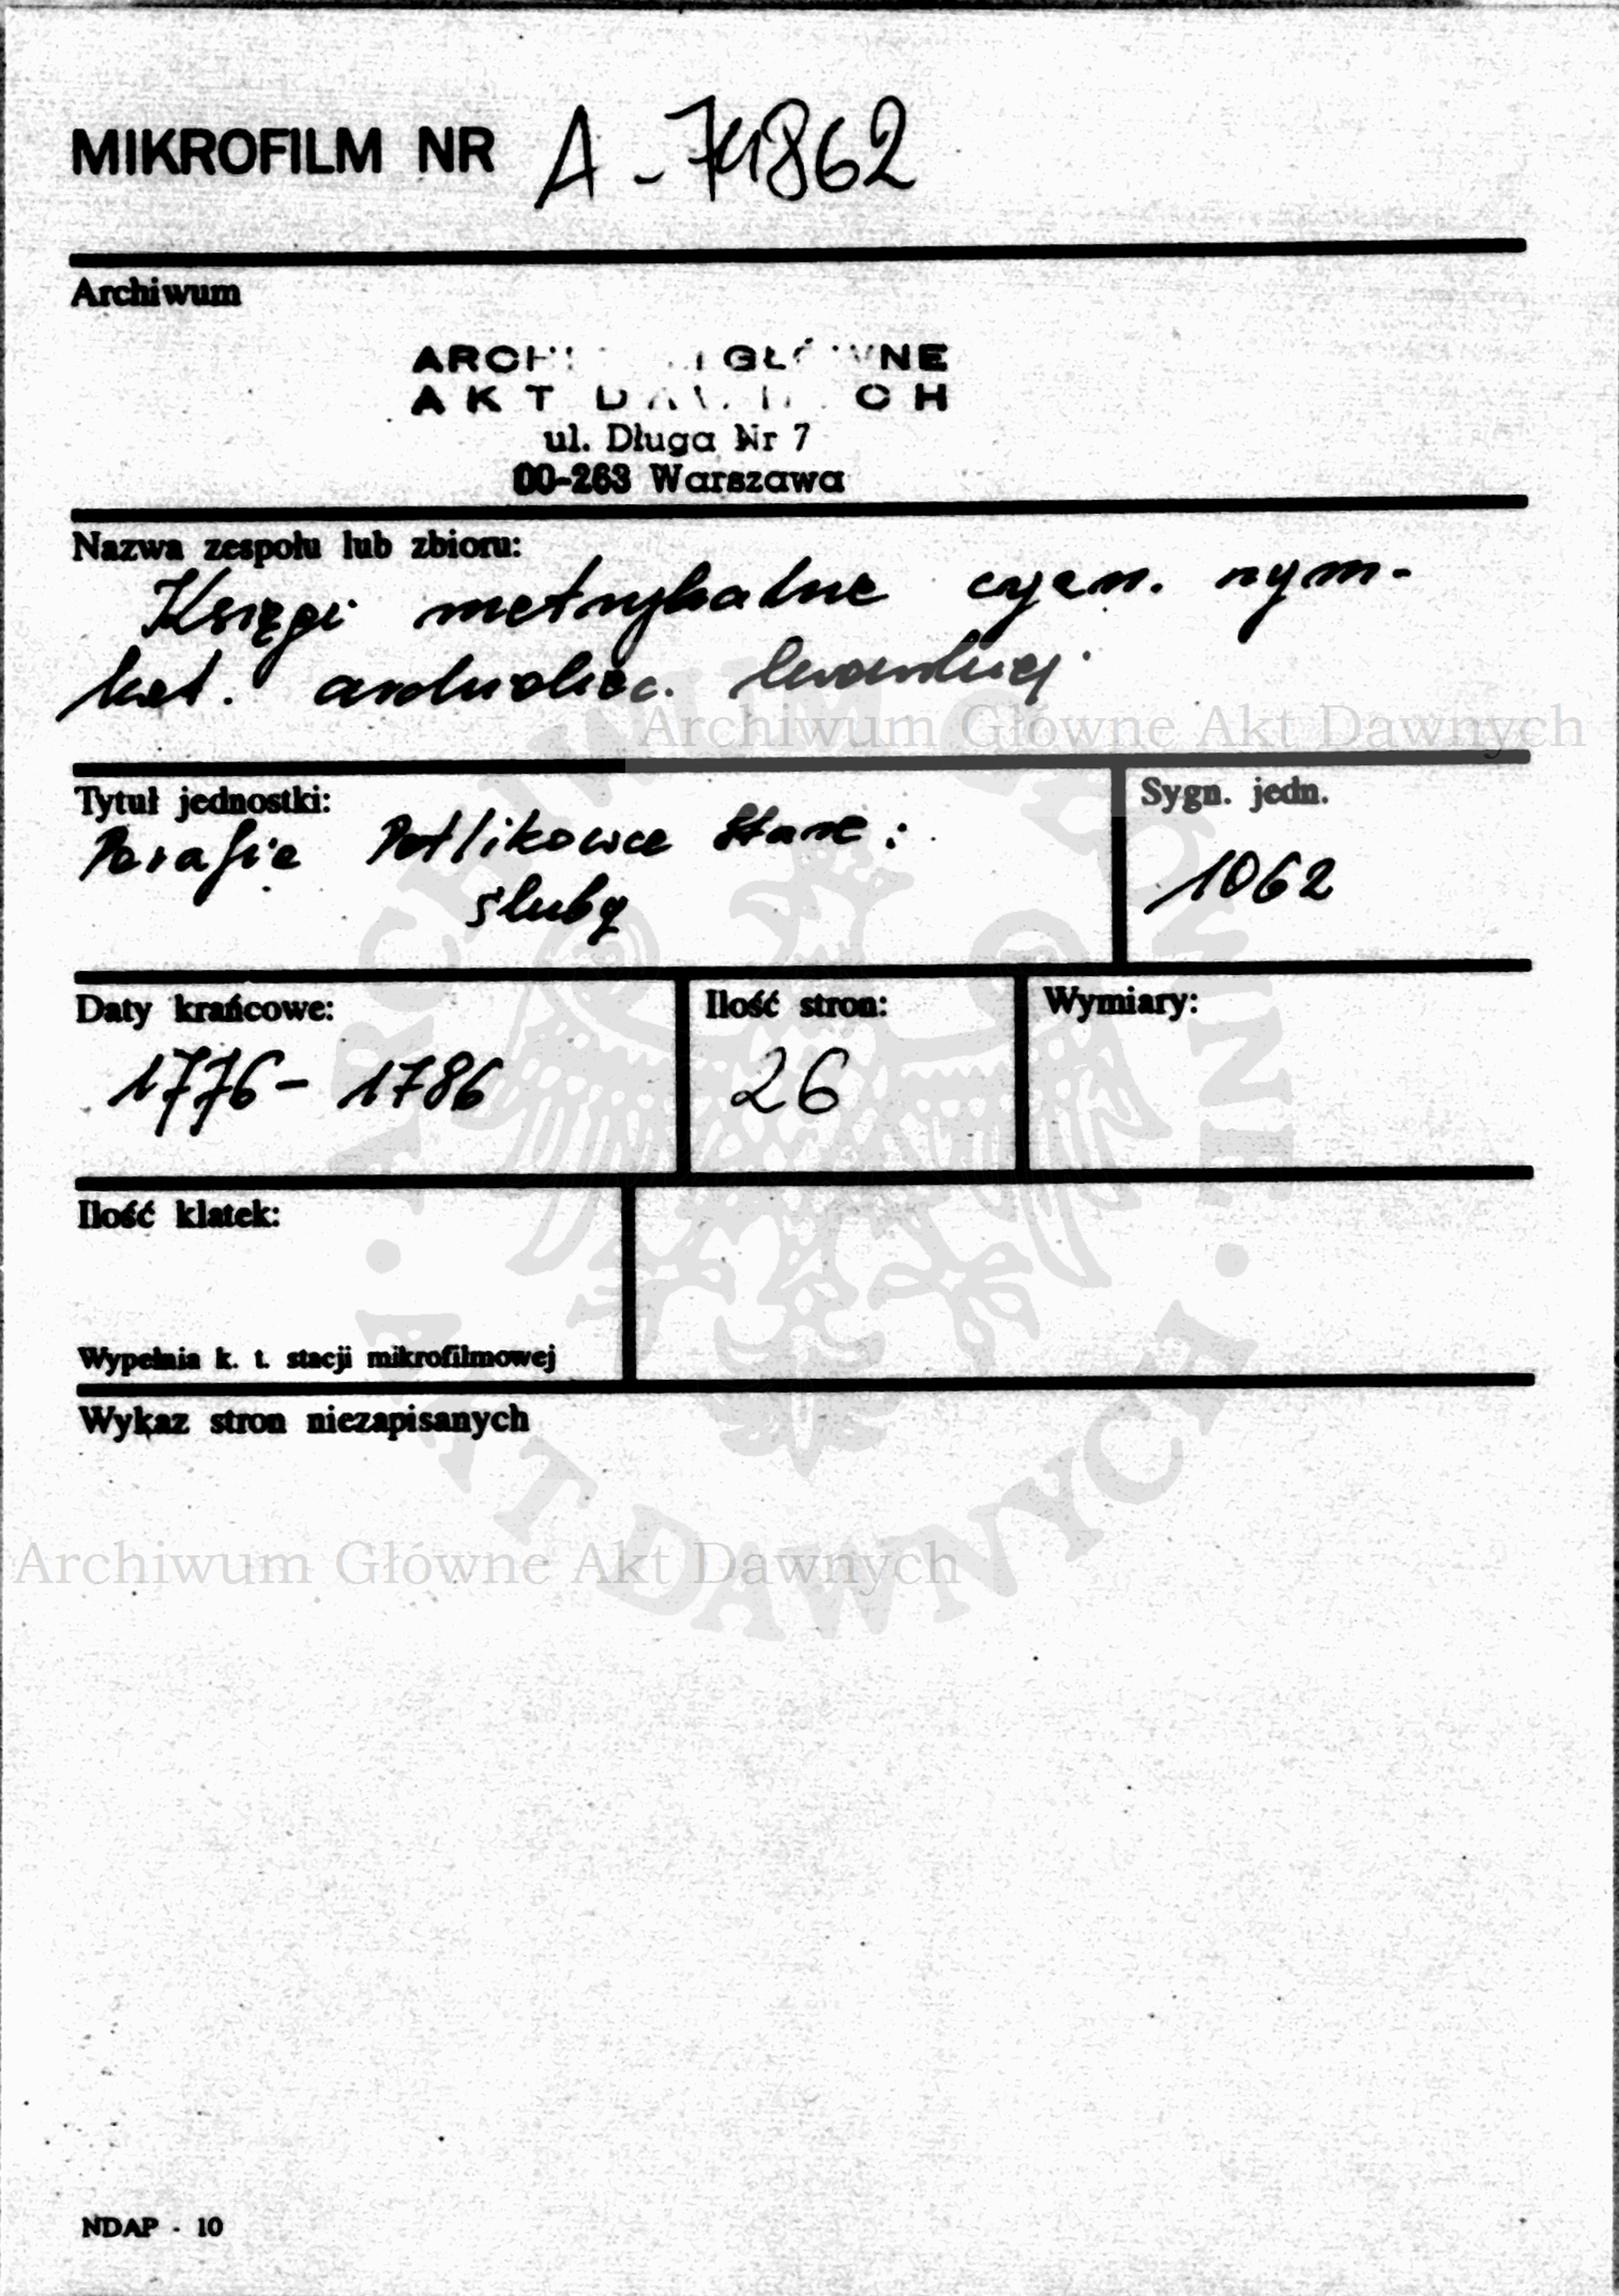 MIKROFILM NR A-74862
Archiwum
ARCHI GŁÓWNE
AKT DAWNYCH
ul. Długa Nr 7
00-263 Warszawa
Nazwa zespołu lub zbioru:
Księgi metrykalne rzym.-
kat. archidiec. lwowskiej
Archiwum Główne Akt Dawnych
Tytuł jednostki:
Sygn. jedn.
Parafia Petlikowce Stare:
śluby
1062
Daty krańcowe:
Ilość stron:
Wymiary:
1776- 1786
26
Ilość klatek:
Wypełnia k. t. stacji mikrofilmowej
Wykaz stron niezapisanych
Archiwum Główne Akt Dawnych
NDAP - 10